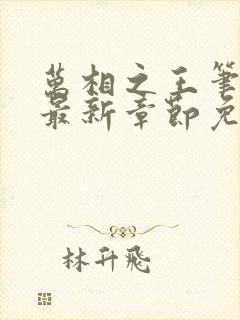 萬相之王筆
最新章節免
林升飛